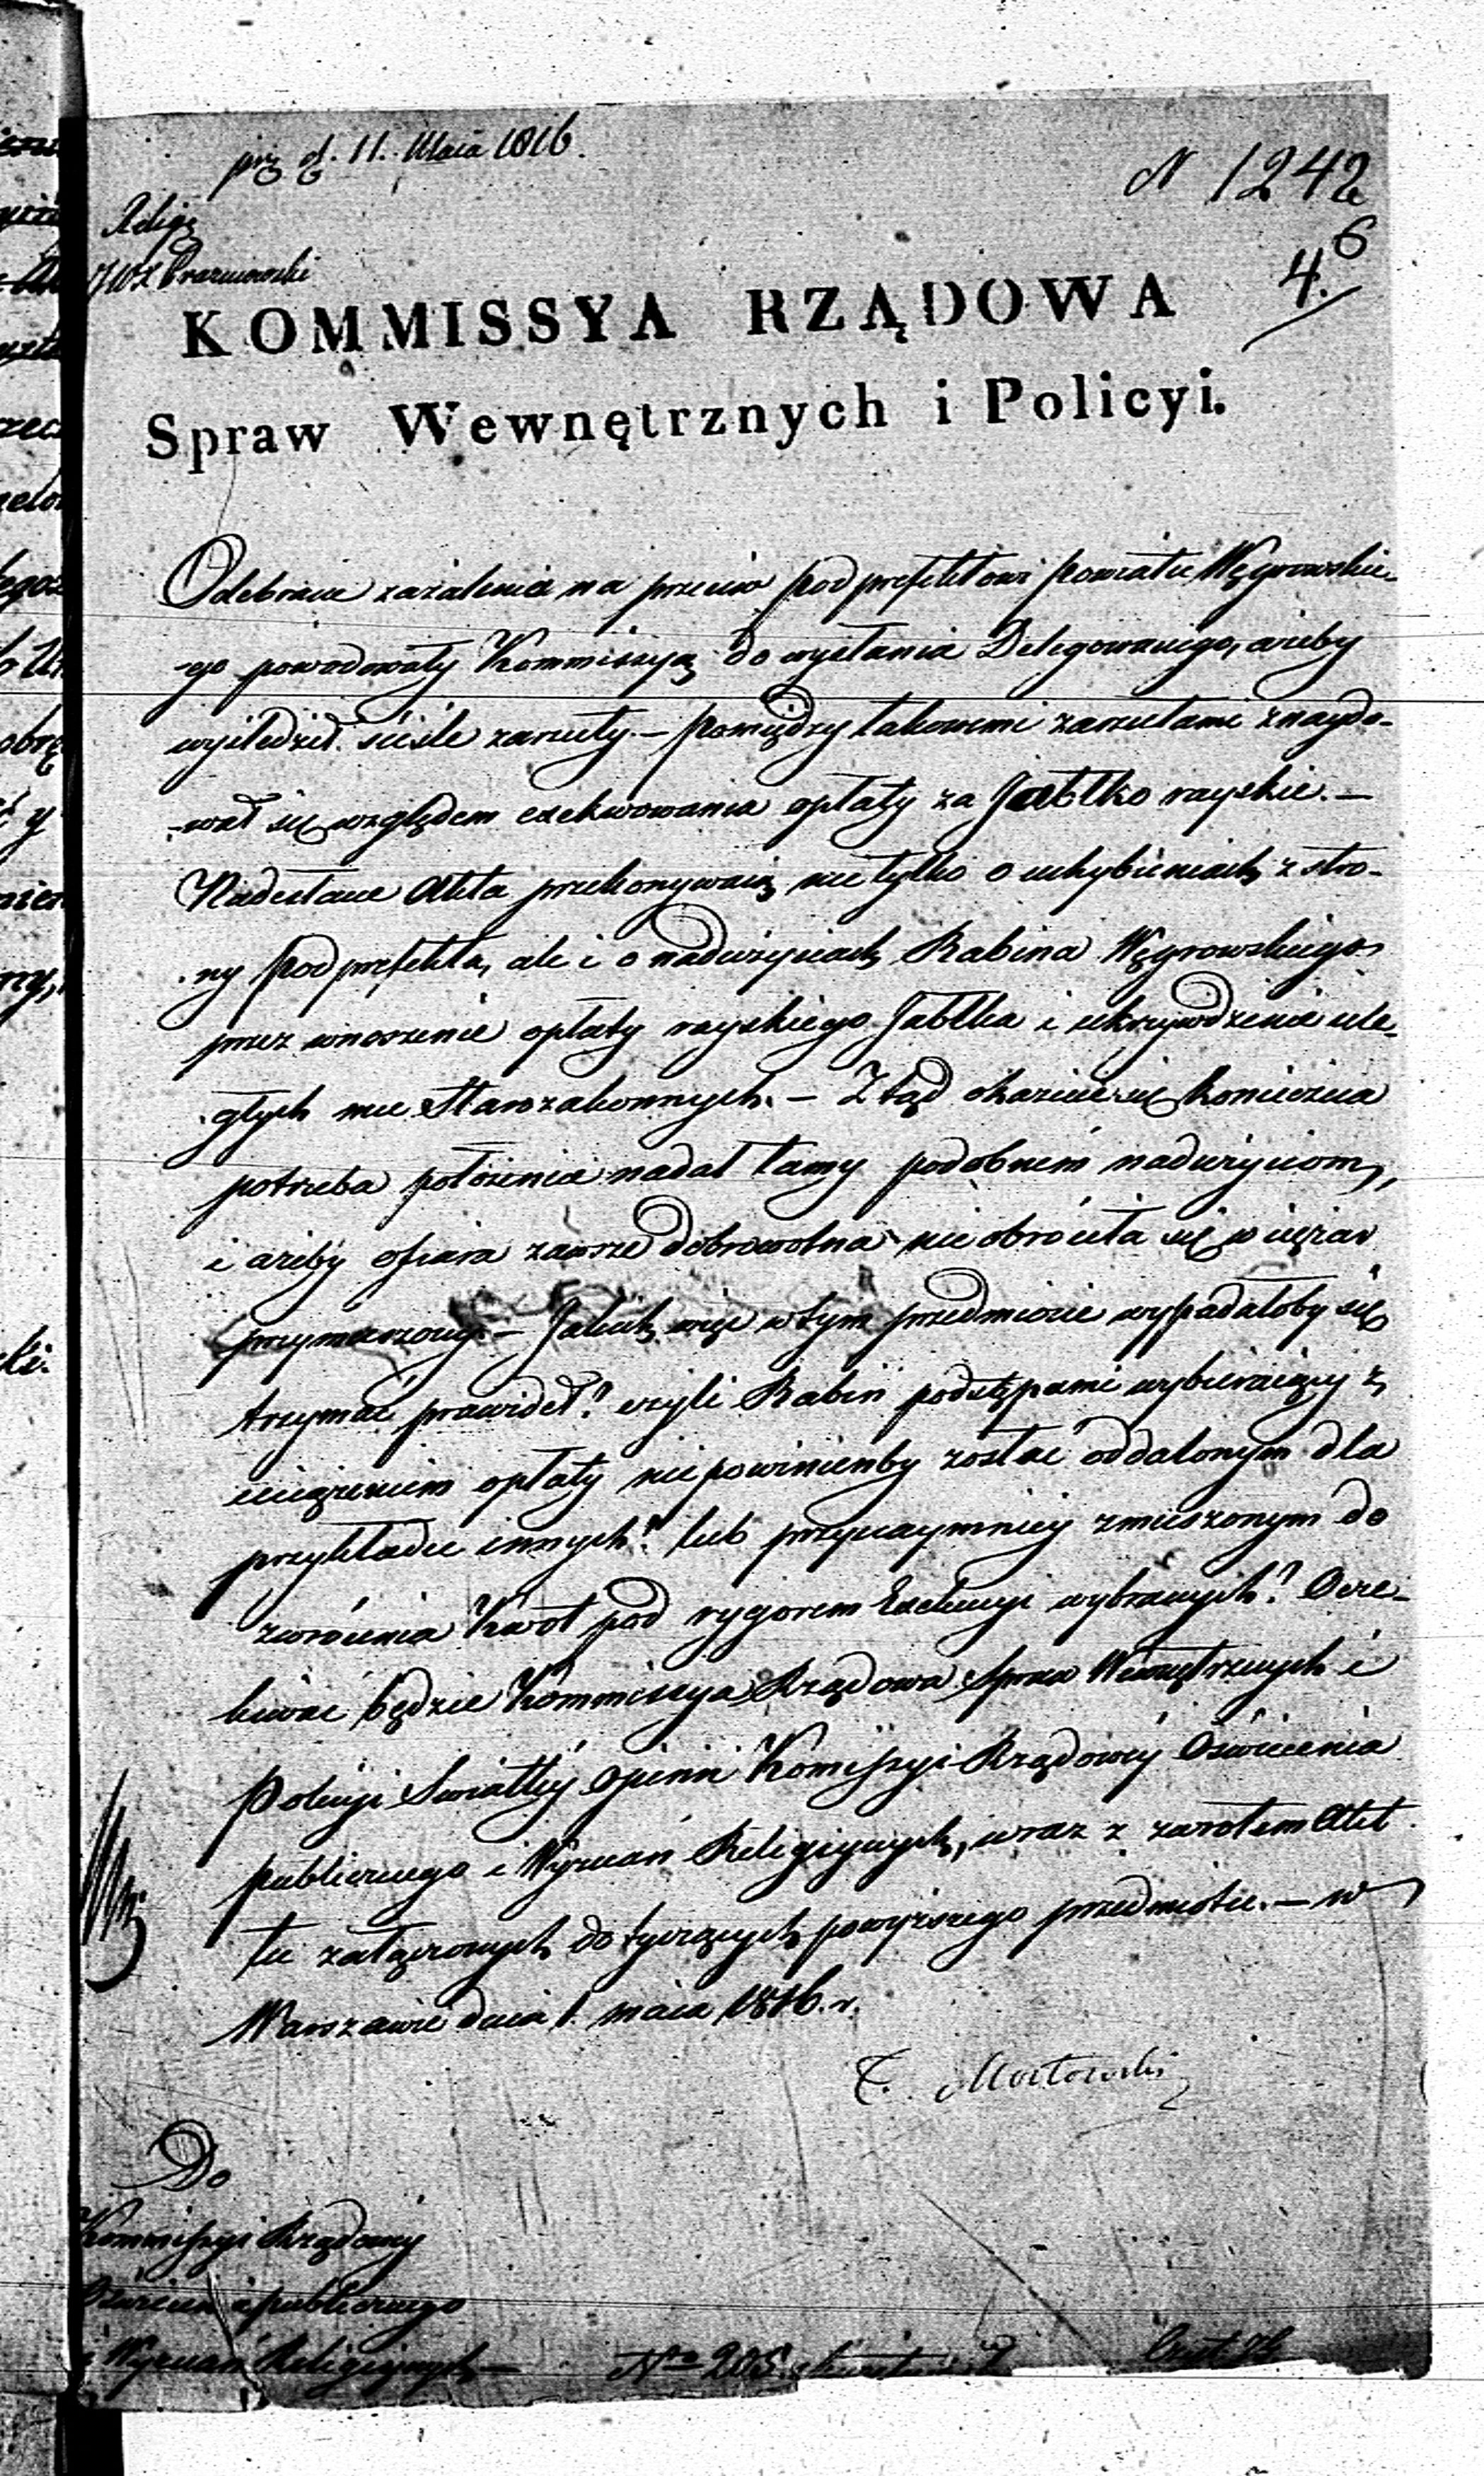 prz d. 11. Maia 1816.
N 1242
6
4.
Religi
JWX Prazmowski
KOMMISSYA RZĄDOWA
Spraw Wewnętrznych i Policyi.
Odebrane zażalenia na przeciw Podprefektowi Powiatu Węgrowskie-
-go powodowały Kommissyą do wysłania Delegowanego, ażeby
wyśledził ściśle zarzuty. — Pomiędzy takowemi zarzutami znaydo-
-wał się względem exekwowania opłaty za Jabłko rayskie. —
Nadesłane Akta przekonywaią nie tylko o uchybieniach z stro-
-ny Podprefekta, ale i o nadużyciach Rabina Węgrowskiego
przez wnoszenie opłaty rayskiego Jabłka i ukrzywdzenie ule-
-głych mu Starozakonnych. — Ztąd okazuie się konieczna
potrzeba położenia nadal tamy podobnem nadużyciom,
i ażeby ofiara zawsze dobrowolna nie obróciła się w ciężar
przymuszony. — Jakich więc w tym przedmiocie wypadałoby się
trzymać prawideł? czyli Rabin podstępami wybieraiący z
uciążeniem opłaty niepowinienby zostać oddalonym dla
przykładu innych? lub przynaymniey zmuszonym do
zwrócenia kwot pod rygorem Exekucyi wybranych? Ocze-
kiwać będzie Kommissya Rządowa Spraw Wewnętrznych i
Policyi Swiatłey Opinii Komissyi Rządowey Oświecenia
publicznego i Wyznań Religiynych, wraz z zwrotem Akt
tu załączonych do tyczących powyższego przedmiotu. — w
Warszawie dnia 1. maia 1816. r.
T. Mostowski
Do
Kommissyi Rządowey
Oświecenia publicznego
i Wyznań Religiynych —
Nro 205